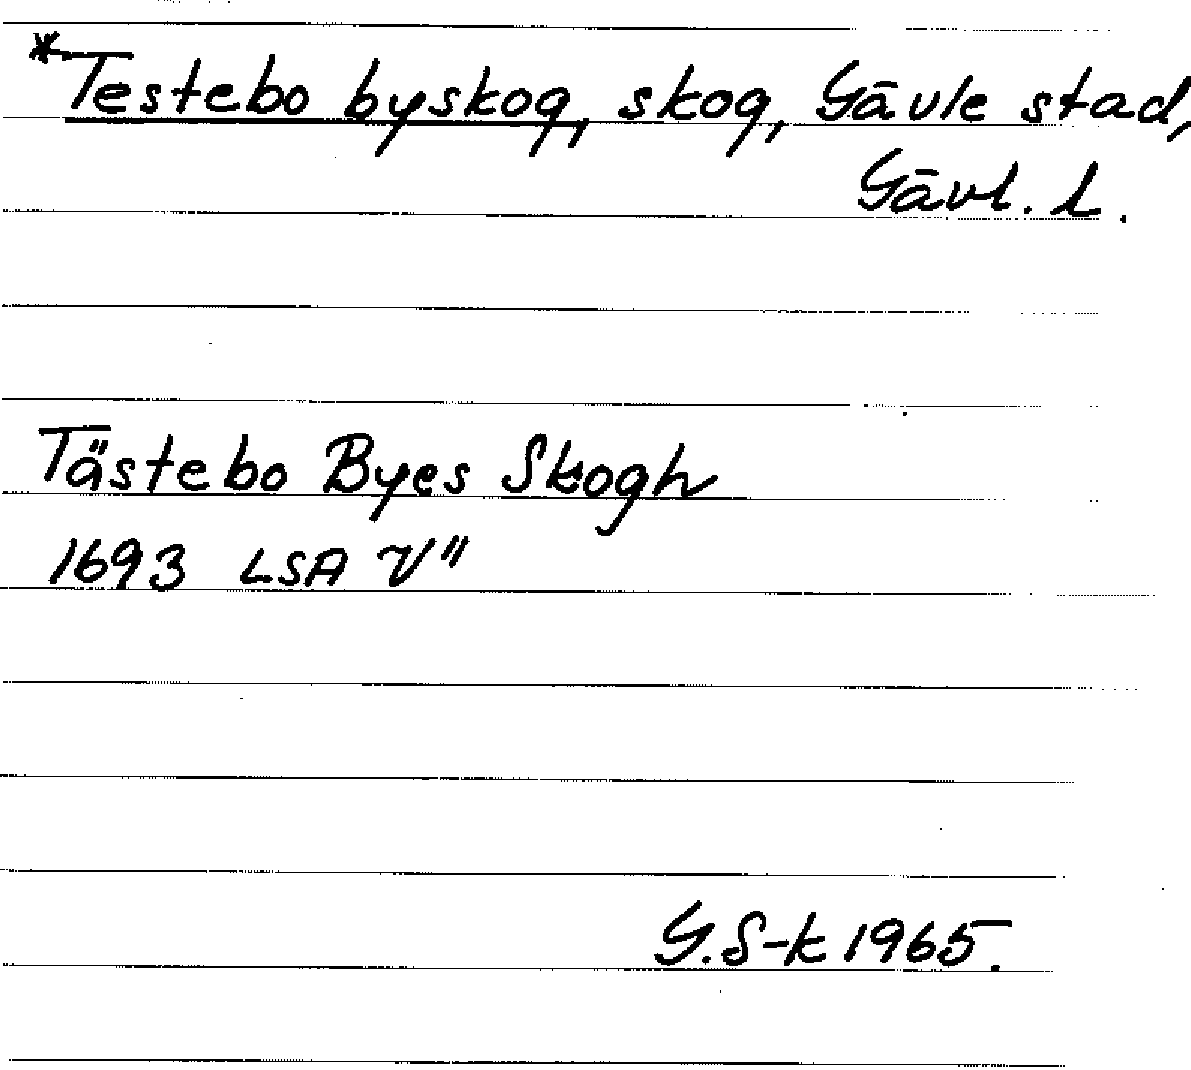 *Testebo byskog, skog, Gävle stad,
Gävl. l.
Tästebo Byes Skogh
1693 LSA V"
G.S-k 1965.